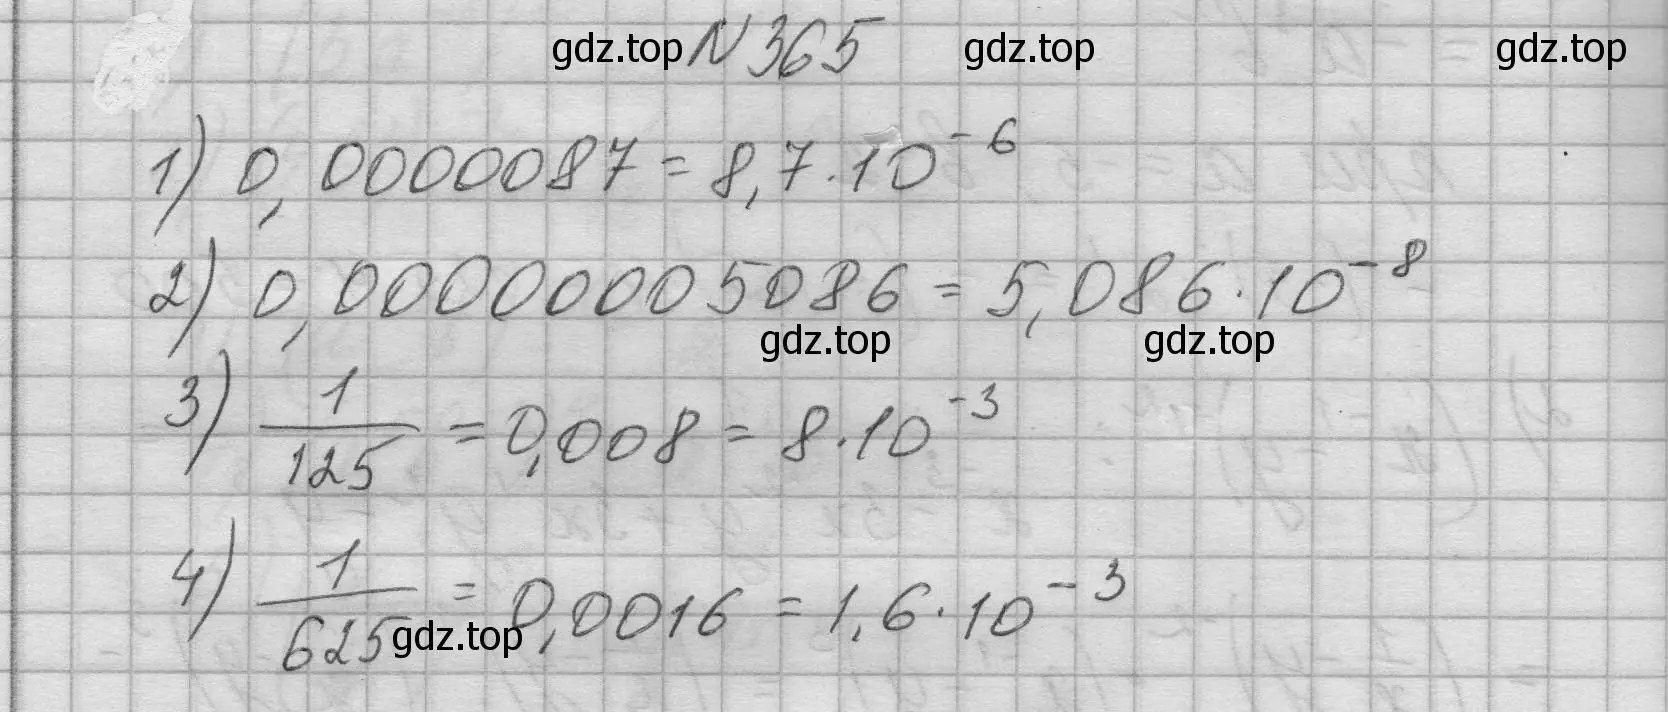 gdz.top N 365 gdz.top gdz.top
1) 0,0000087 = 8,7 · 10⁻⁶
2) 0,00000005086 = 5,086 · 10⁻⁸
gdz.top gdz.top
3) 1/125 = 0,008 = 8 · 10⁻³
4) 1/625 = 0,0016 = 1,6 · 10⁻³
gdz.top